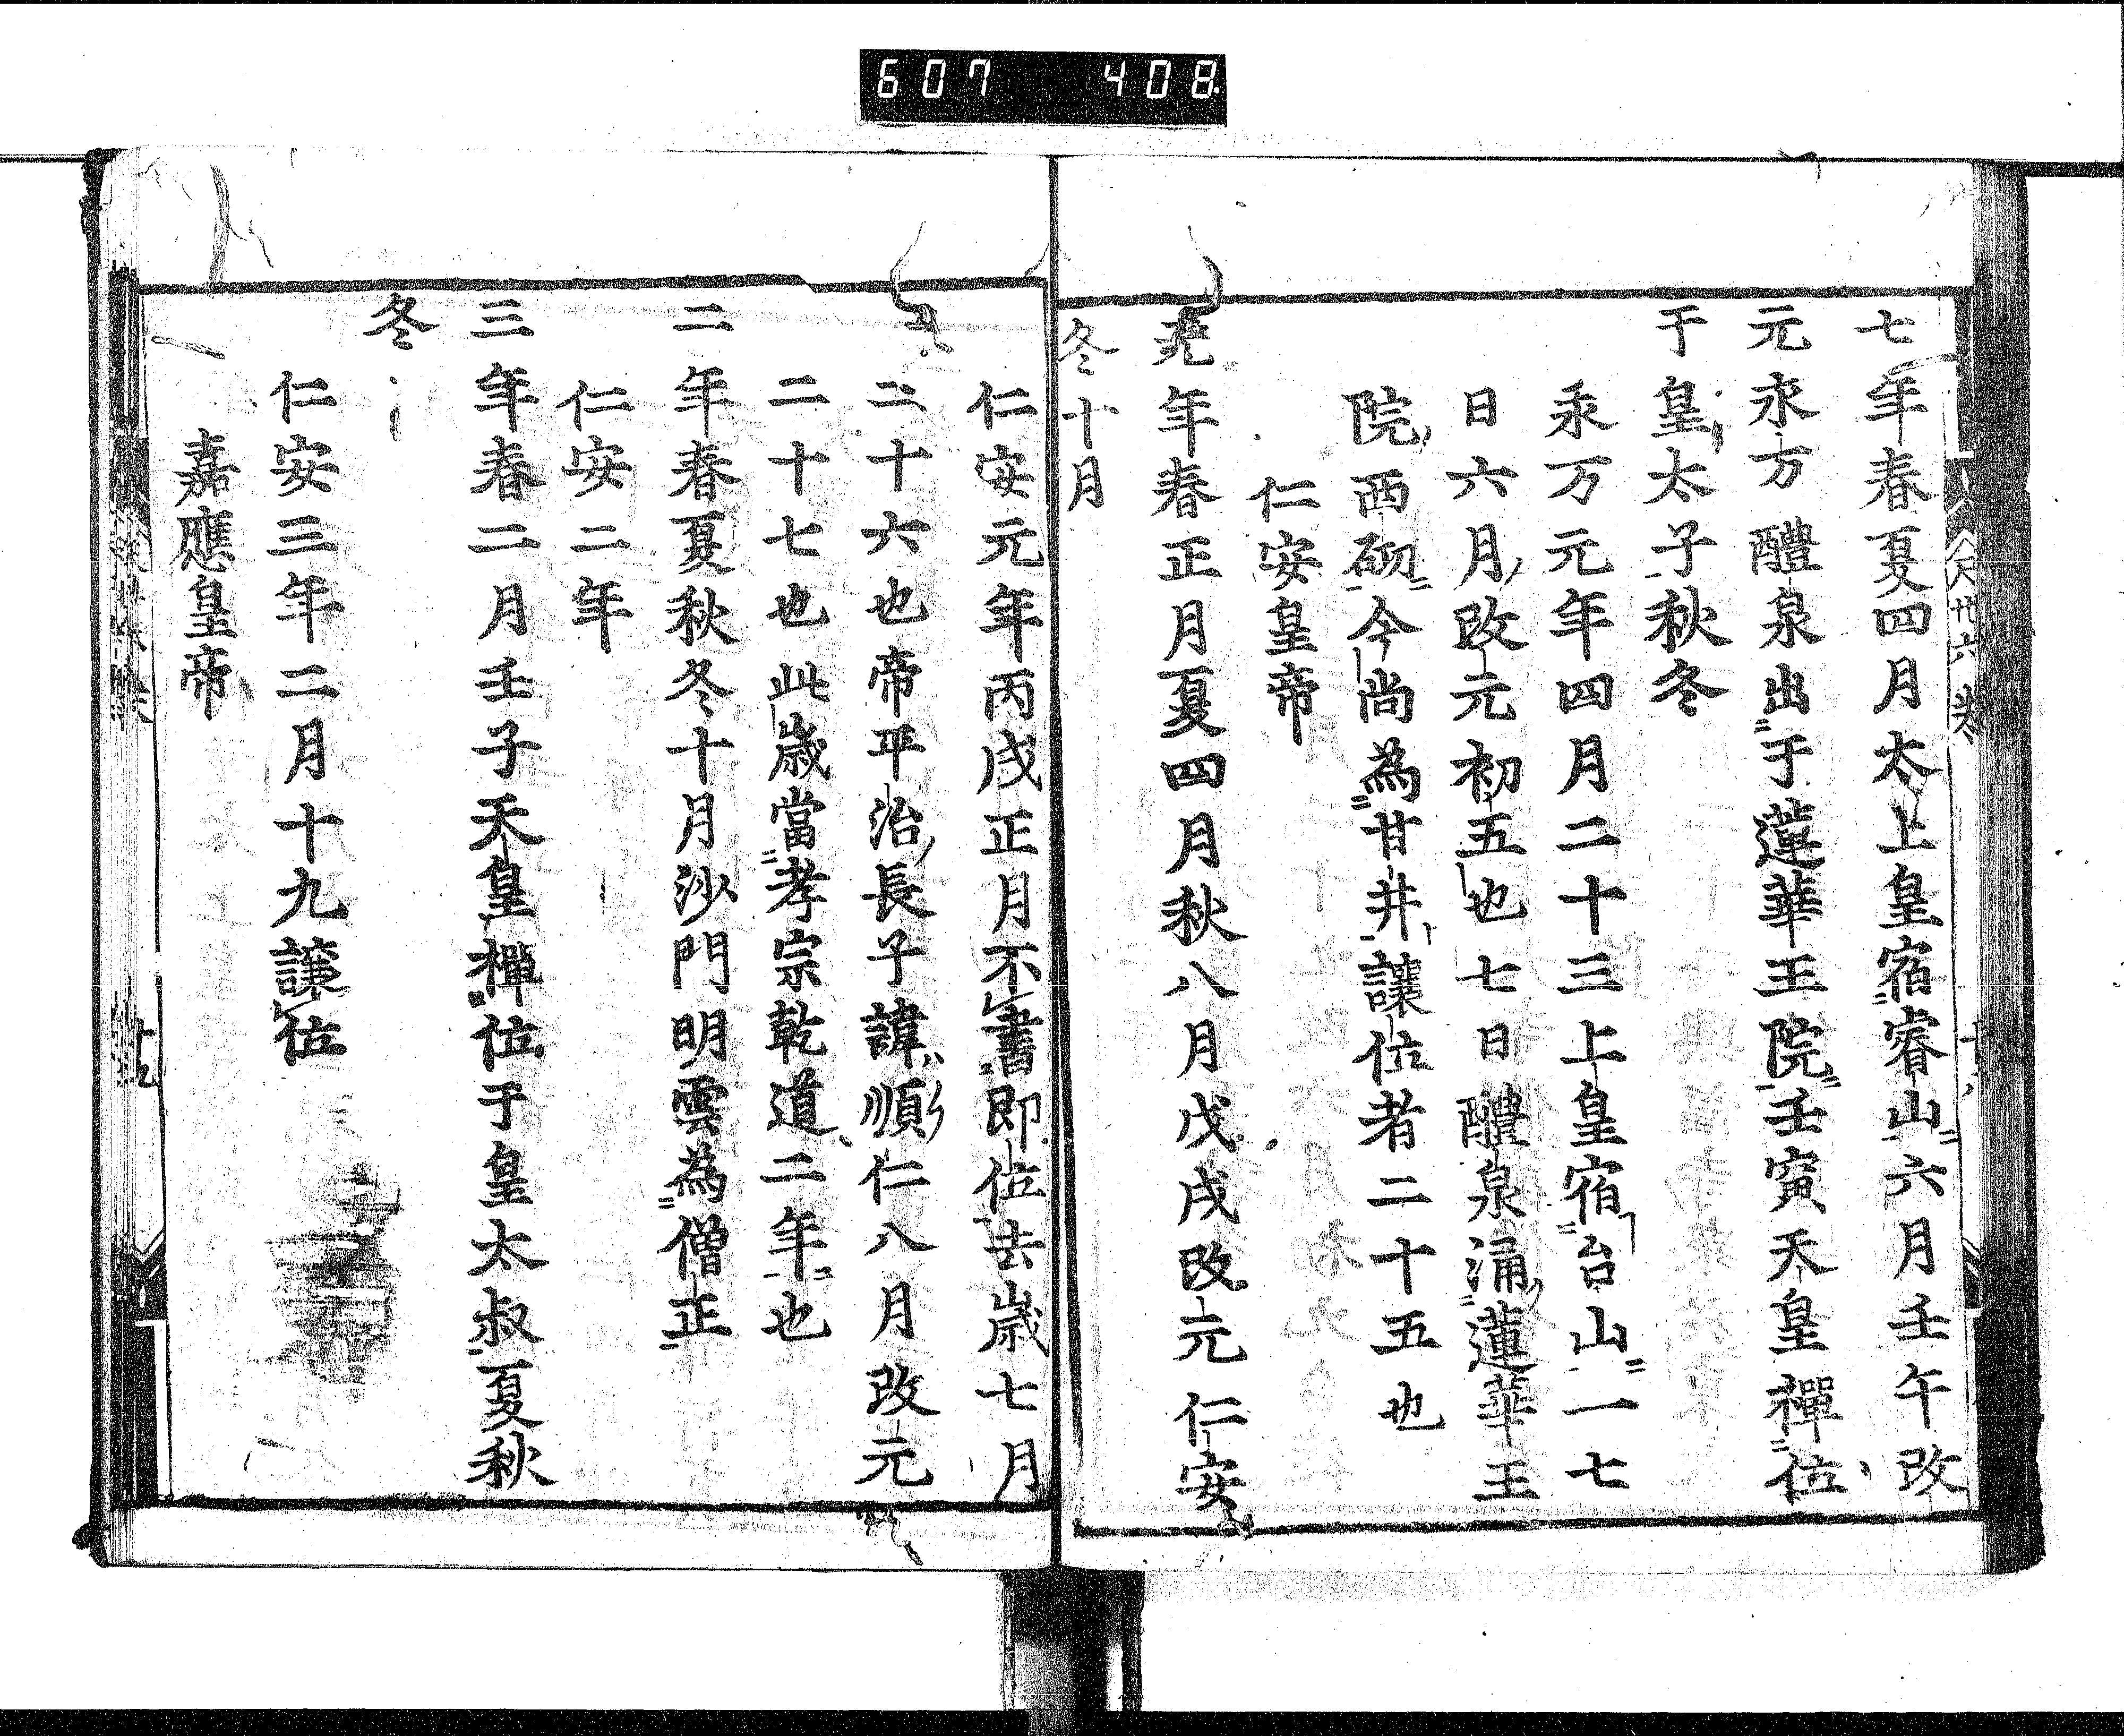 607 408
七年春夏四月太上皇宿睿山六月壬午改
元永万醴泉出于蓮華王院壬寅天皇禪位
于皇太子秋冬
永万元年四月二十三上皇宿台山一七
日六月改元初五也七日醴泉涌蓮華王
院西砌今尚為甘井讓位者二十五也
仁安皇帝
元年春正月夏四月秋八月戊戌改元仁安
冬十月
仁安元年丙戌正月不書即位去歳七月
二十六也帝平治長子諱順仁八月改元
二十七也此歳當孝宗乾道二年也
二年春夏秋冬十月沙門明雲為僧正
仁安二年
三年春二月壬子天皇禪位于皇太叔夏秋
冬
仁安三年二月十九讓位
嘉應皇帝